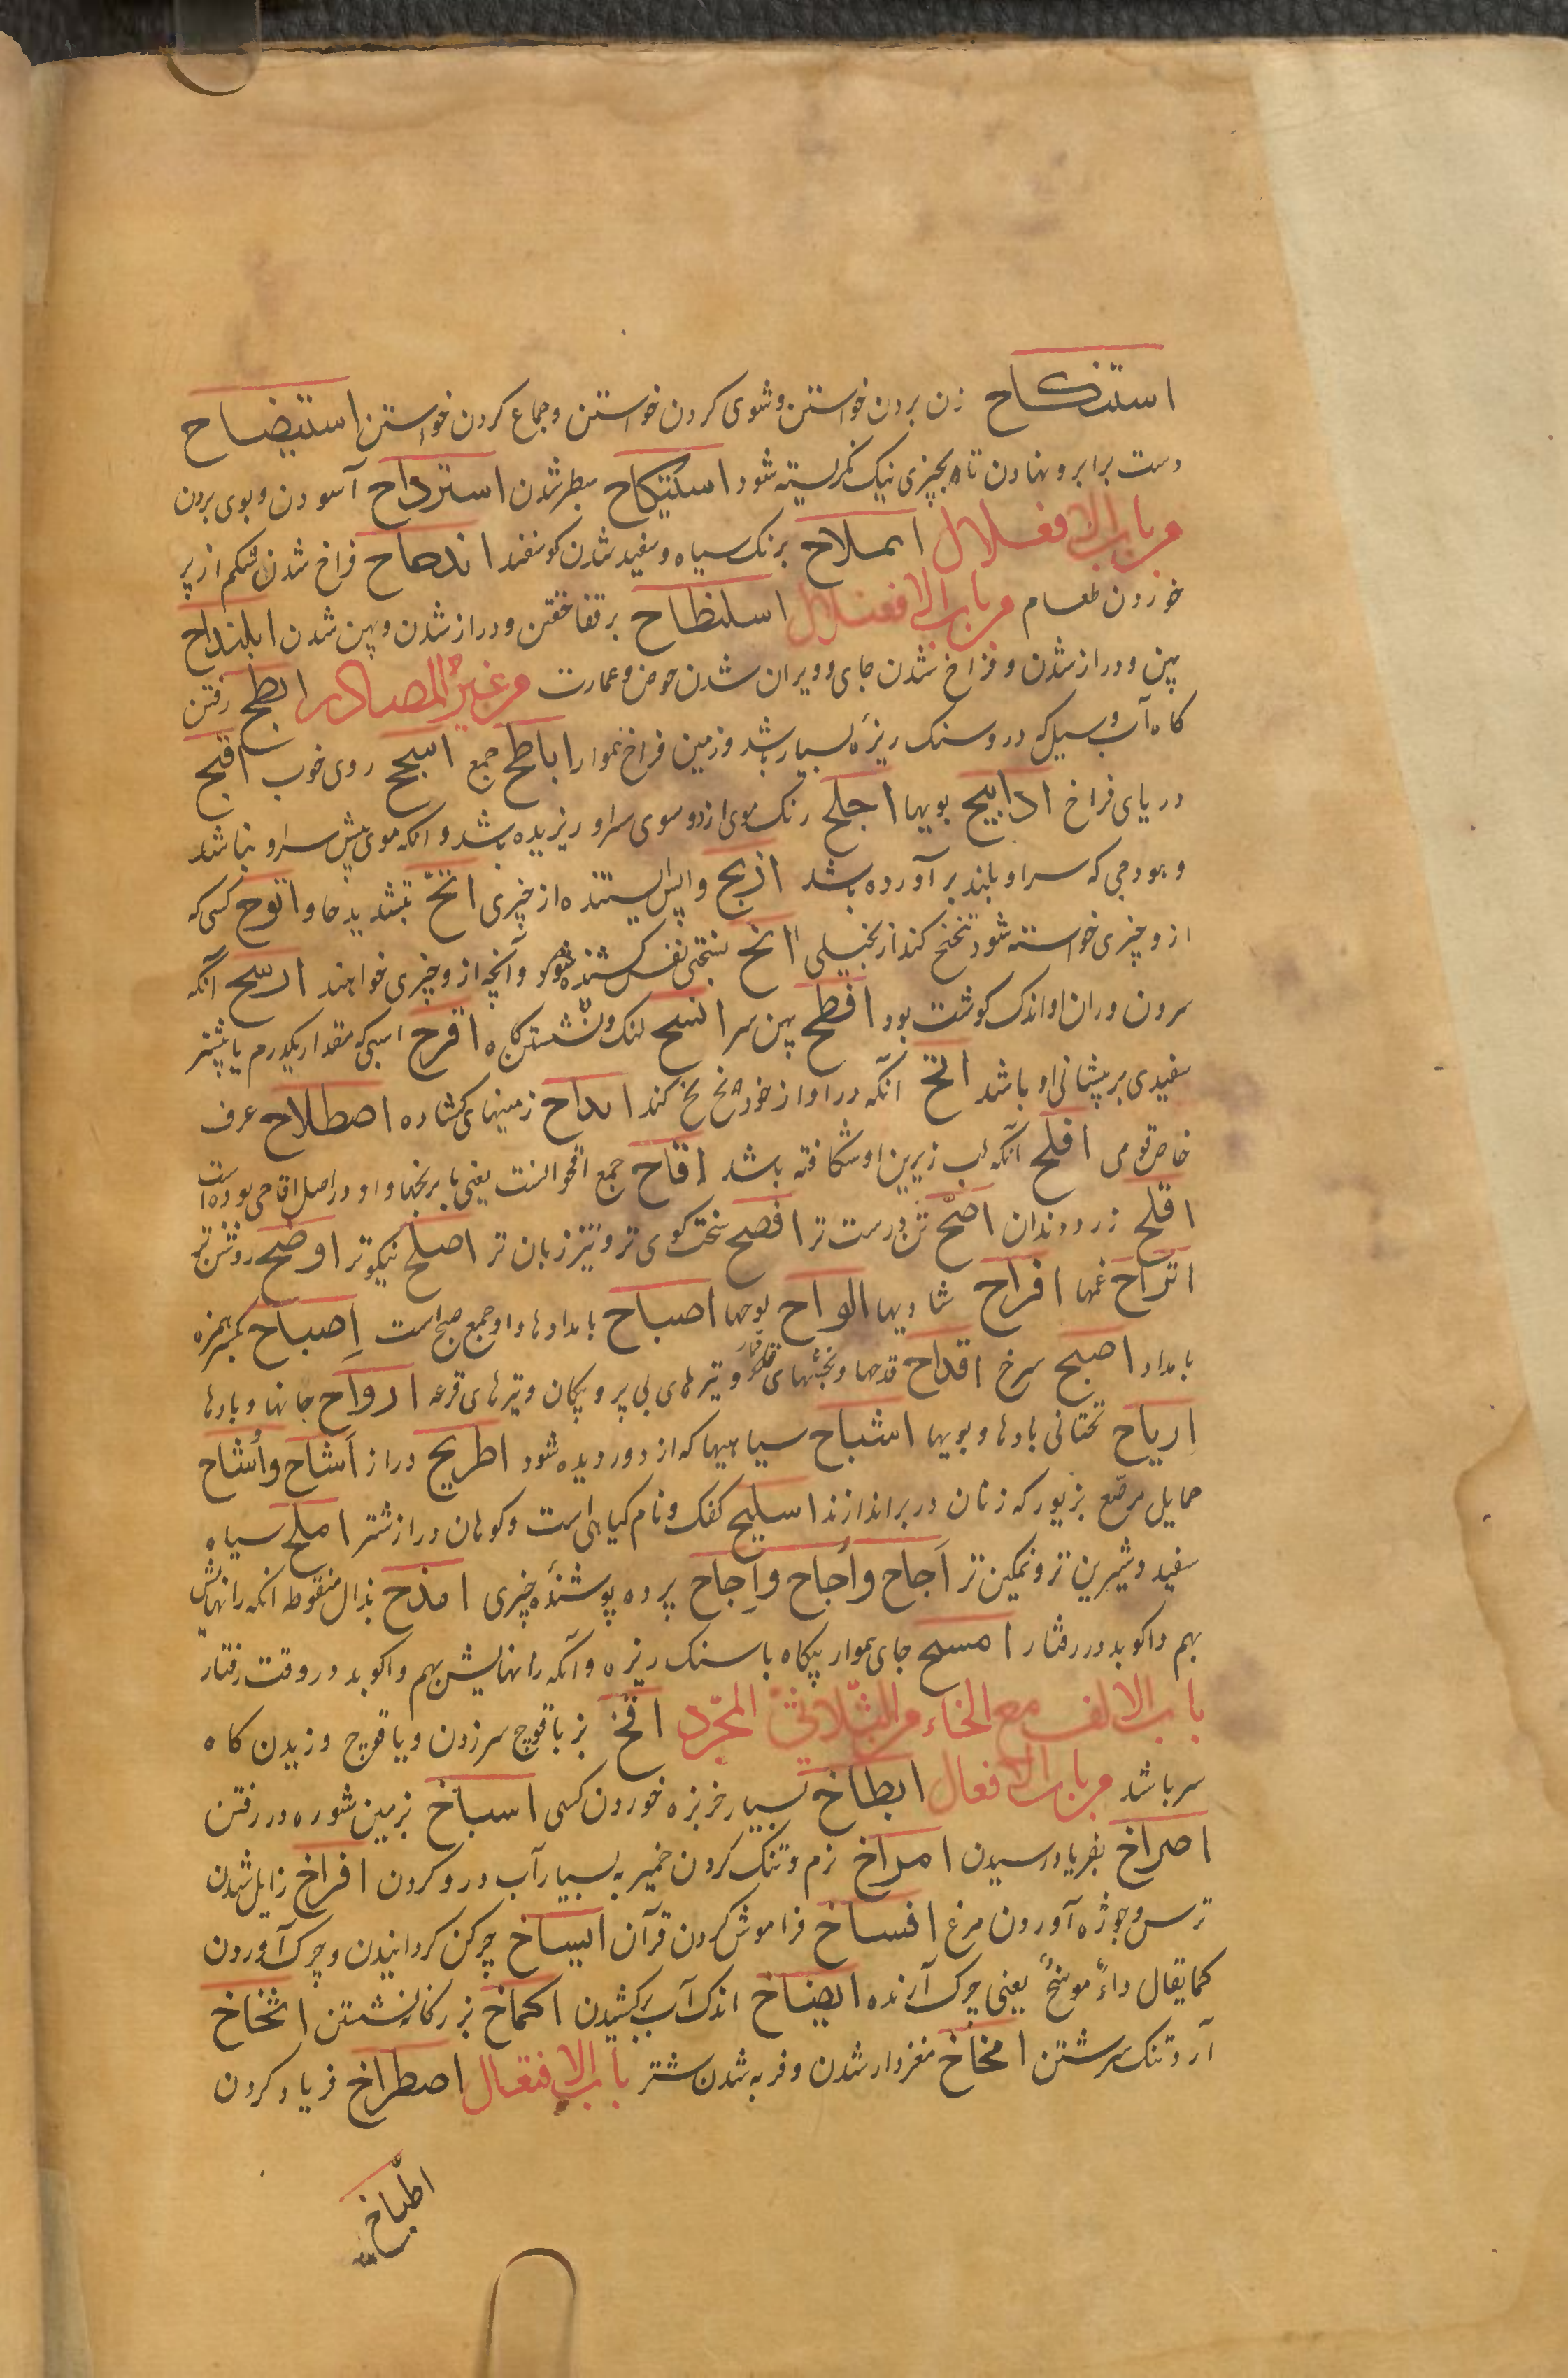 استنکاح زن بردن خواستن و شوی کردن خواستن و جماع کردن خواستن استیضاح
دست برابرو نهادن تا بچیزی نیک نگریسته شود استیکاح سطبر شدن استرواح آسودن و بوی بردن
من باب الافعلال املاح برنک سیاه و سفید شدن کوسفند اندحاح فراخ شدن شکم از پر
خوردن طعام من باب الافعنلال اسلنطاح برقفا خفتن و دراز شدن و پهن شدن ابلنداح
پهن و دراز شدن و فراخ شدن جای و ویران شدن حوض و عمارت من غیر المصادر ابطح رفتن
کاه آب و سیل که درو سنک ریزه بسیار باشد و زمین فراخ هموار اباطح جمع اسجح روی خوب افیح
دریای فراخ اراییح بویها اجلح رنک موی از دو سوی سر او ریزیده باشد و انکه موی پیش سر او نباشد
و هودجی که سر او بلند برآورده باشد ازیح واپس ایستنده از چیزی انحّ بتشدید حا و انوح کسی که
ازو چیزی خواسته شود تنحنح کند از بخیلی انح بسختی نفس کشنده شود و آنچه ازو چیزی خواهند ارسح آنکه
سرون و ران او اندک کوشت بود افطح پهن سر انسح لنک و نشستن کاه اقرح اسبی که مقدار یکدرم یا بیشتر
سفیدی بر پیشانی او باشد انحّ آنکه در اواز خود نخ نخ کند ابداح زمینهای کشاده اصطلاح عرف
خاص قومی افلح آنکه لب زیرین او شکافته باشد اقاح جمع اقحوانست یعنی بابرنجها و او در اصل اقاحی بوده است
اقلح زرد دندان اصحّ تن درست تر افصح سخت کوی تر و تیز زبان تر اصلح نیکوتر اوضح روشن تر
اتراح غمها افراح شادیها الواح لوحها اصباح بامدادها و او جمع صبح است اِصباح بکسر همزه
بامداد اصبح سرخ اقداح قدحها و تیرهای بی پر و پیکان و تیرهای قرعه ارواح جانها و بادها
اریاح تحتانی بادها و بویها اشباح سیاهیها که از دور دیده شود اطریح دراز اَشاح و اُشاح
حمایل مرصّع بزیور که زنان در بر اندازند اسلیح کفک و نام کیاهی است و کوهان دراز شتر املح سیاه
سفید و شیرین تر و نمکین تر اَجاح و اُجاح و اِجاح پرده پوشنده چیزی امذح بذال منقوطه انکه رانهایش
بهم واکوبد در رفتار امسح جای هموار پیکاه با سنک ریزه و آنکه رانهایش بهم واکوبد در وقت رفتار
باب الالف مع الخاء من الثّلاثی المجّرد افخ بر یافوخ سر زدن و یافوخ وزیدن کاه
سر باشد من باب الافعال ابطاخ بسیار خربزه خوردن کسی اسباخ بزمین شوره در رفتن
اصراخ بفریاد رسیدن امراخ نرم و تنک کردن خمیر به بسیار آب درو کردن افراخ زایل شدن
ترس و جوژه آوردن مرغ افساخ فراموش کردن قرآن ایساخ چرکن کردانیدن و چرک آوردن
کما یقال داءٌ موسخٌ یعنی چرک آرنده ایضاخ اندک آب برکشیدن اکماخ بزرکانه نشستن اثخاخ
آرد تنک سرشتن امخاخ مغزدار شدن و فربه شدن شتر باب الافتعال اصطراخ فریاد کردن
اطّباخ